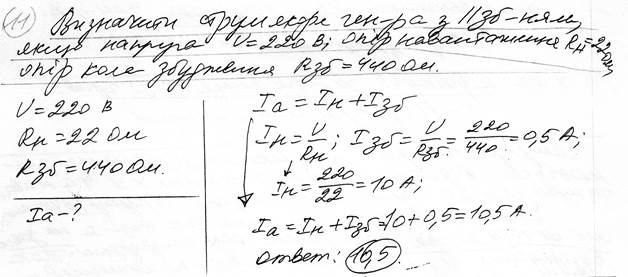 11) Визначити струм якоря ген-ра з //зб-ням,
якщо напруга U=220 В; опір навантаження Rн=22 Ом,
опір кола збудження Rзб=440 Ом.
U=220 В
Rн=22 Ом
Rзб=440 Ом.
Iа-?
Iа=Iн+Iзб
Iн=U/Rн; Iзб=U/Rзб=220/440=0,5 А;
Iн=220/22=10 А;
Iа=Iн+Iзб=10+0,5=10,5 А.
ответ: 10,5.